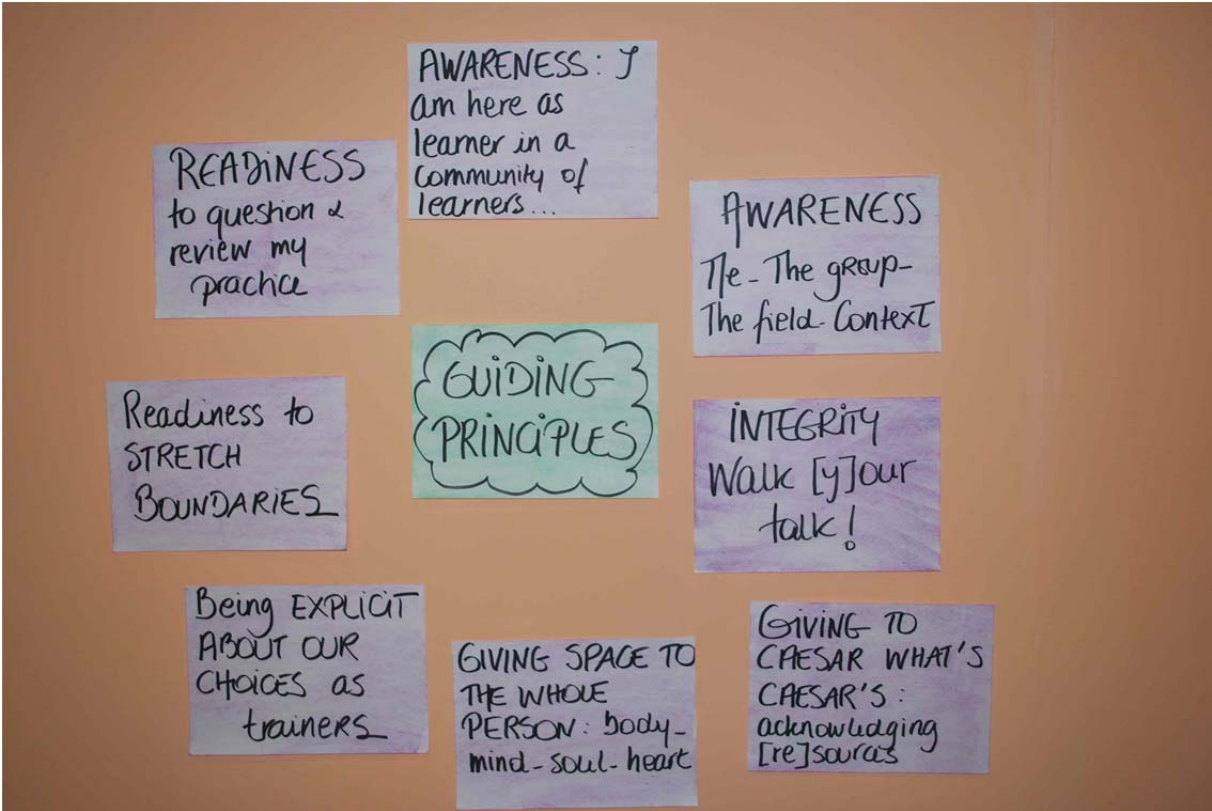 AWARENESS: I
am here as
learner in a
community of
learners...
READINESS
to question &
review my
practice
AWARENESS
Me - The group -
The field - Context
GUIDING
PRINCIPLES
Readiness to
STRETCH
BOUNDARIES
INTEGRITY
Walk [y]our
talk!
Being EXPLICIT
ABOUT OUR
CHOICES as
trainers
GIVING SPACE TO
THE WHOLE
PERSON: body -
mind - soul - heart
GIVING TO
CAESAR WHAT'S
CAESAR'S:
acknowledging
[re]sources